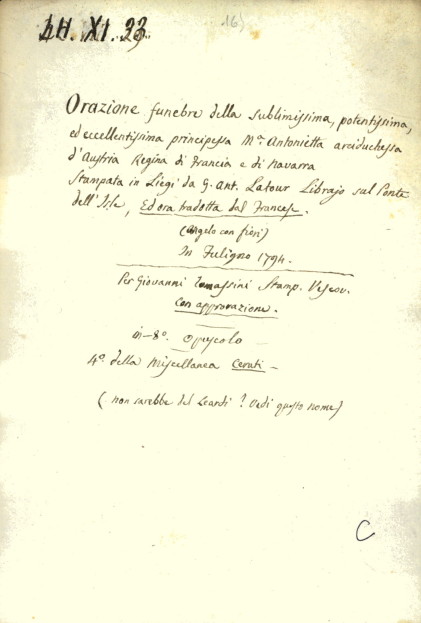 LH. XI. 33
16)
Orazione funebre della sublimissima, potentissima,
ed eccellentissima principessa Mª. Antonietta arciduchessa
d'Austria Regina di Francia e di Navarra
Stampata in Liegi da G. Ant. Latour Librajo sul Ponte
dell'Isle, Ed ora tradotta dal Francese.
(Angelo con fiori)
In Fuligno 1794.
Per Giovanni Tomassini Stamp. Vescov.
Con approvazione.
in-8º. opuscolo
4º. della Miscellanea Ceruti -
(non sarebbe del Leardi? Vedi questo nome)
C